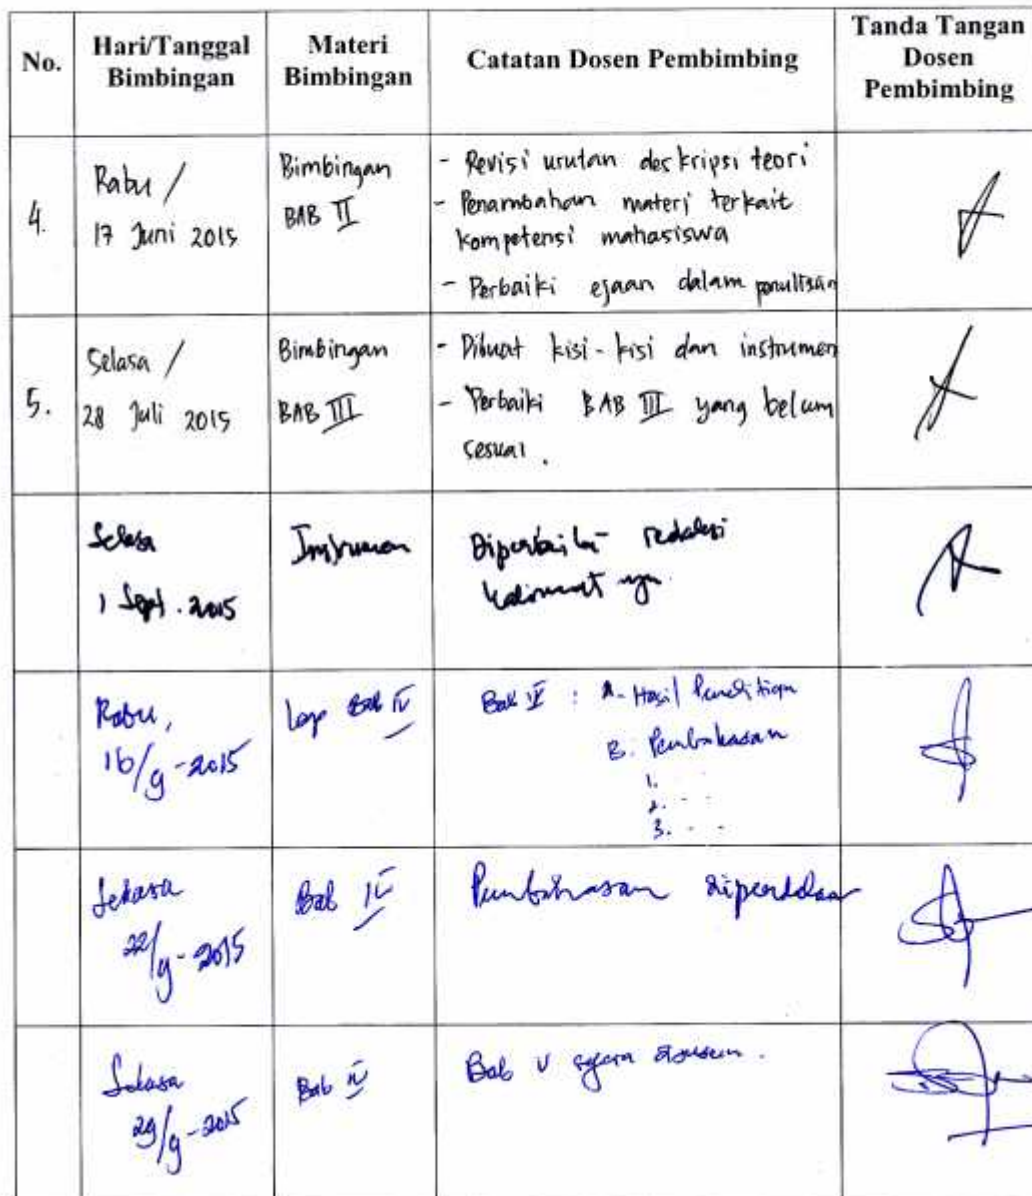 No.
Hari/Tanggal
Bimbingan
Materi
Bimbingan
Catatan Dosen Pembimbing
Tanda Tangan
Dosen
Pembimbing
4.
Rabu /
17 Juni 2015
Bimbingan
BAB II
- Revisi urutan deskripsi teori
- Penambahan materi terkait
kompetensi mahasiswa
- Perbaiki ejaan dalam penulisan
5.
Selasa /
28 Juli 2015
Bimbingan
BAB III
- Dibuat kisi-kisi dan instrumen
- Perbaiki BAB III yang belum
sesuai.
Selasa
1 Sept. 2015
Instrumen
Diperbaiki redaksi
kalimat nya.
Rabu,
16/9-2015
Lap Bab IV
Bab IV : A. Hasil Penelitian
B. Pembahasan
1.
2. - -
3. - -
Selasa
22/9-2015
Bab IV
Pembahasan diperdalam
Selasa
29/9-2015
Bab IV
Bab V segera disusun.